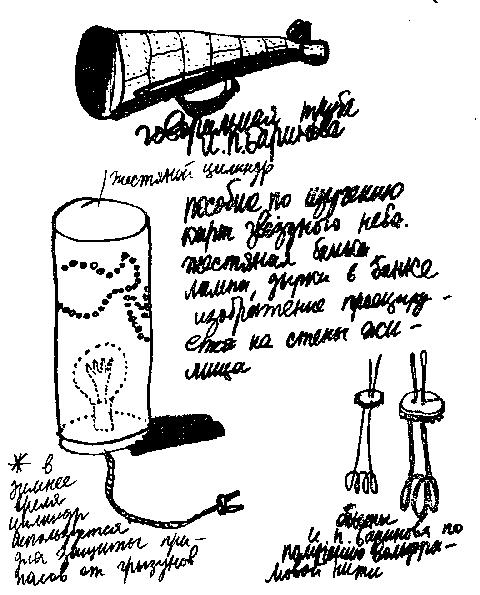 говорильная труба
И.П. Баринова
жестяной цилиндр
пособие по изучению
карт звёздного неба.
жестяная банка
лампа, дырки в банке
изображение проециру-
ется на стены жи-
лища
* в
зимнее
время
цилиндр
используется
для защиты при-
пасов от грызунов
И. П. Баринова по
вольфра-
мовой нити